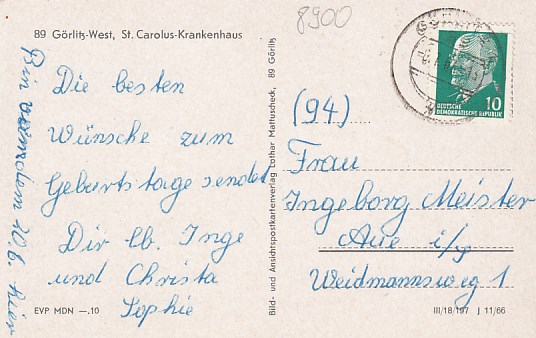 89 Görlitz-West, St. Carolus-Krankenhaus
8900
Die besten
Wünsche zum
Geburtstage sendet
Dir lb. Inge
und Christa
Sophie
Bin 20.6. hier
EVP MDN —.10
Bild- und Ansichtspostkartenverlag Lothar Mattuscheck, 89 Görlitz
DEUTSCHE
DEMOKRATISCHE REPUBLIK
10
(94)
Frau
Ingeborg Meister
Aue i/
Weidmannsweg 1
III/18/197 J 11/66